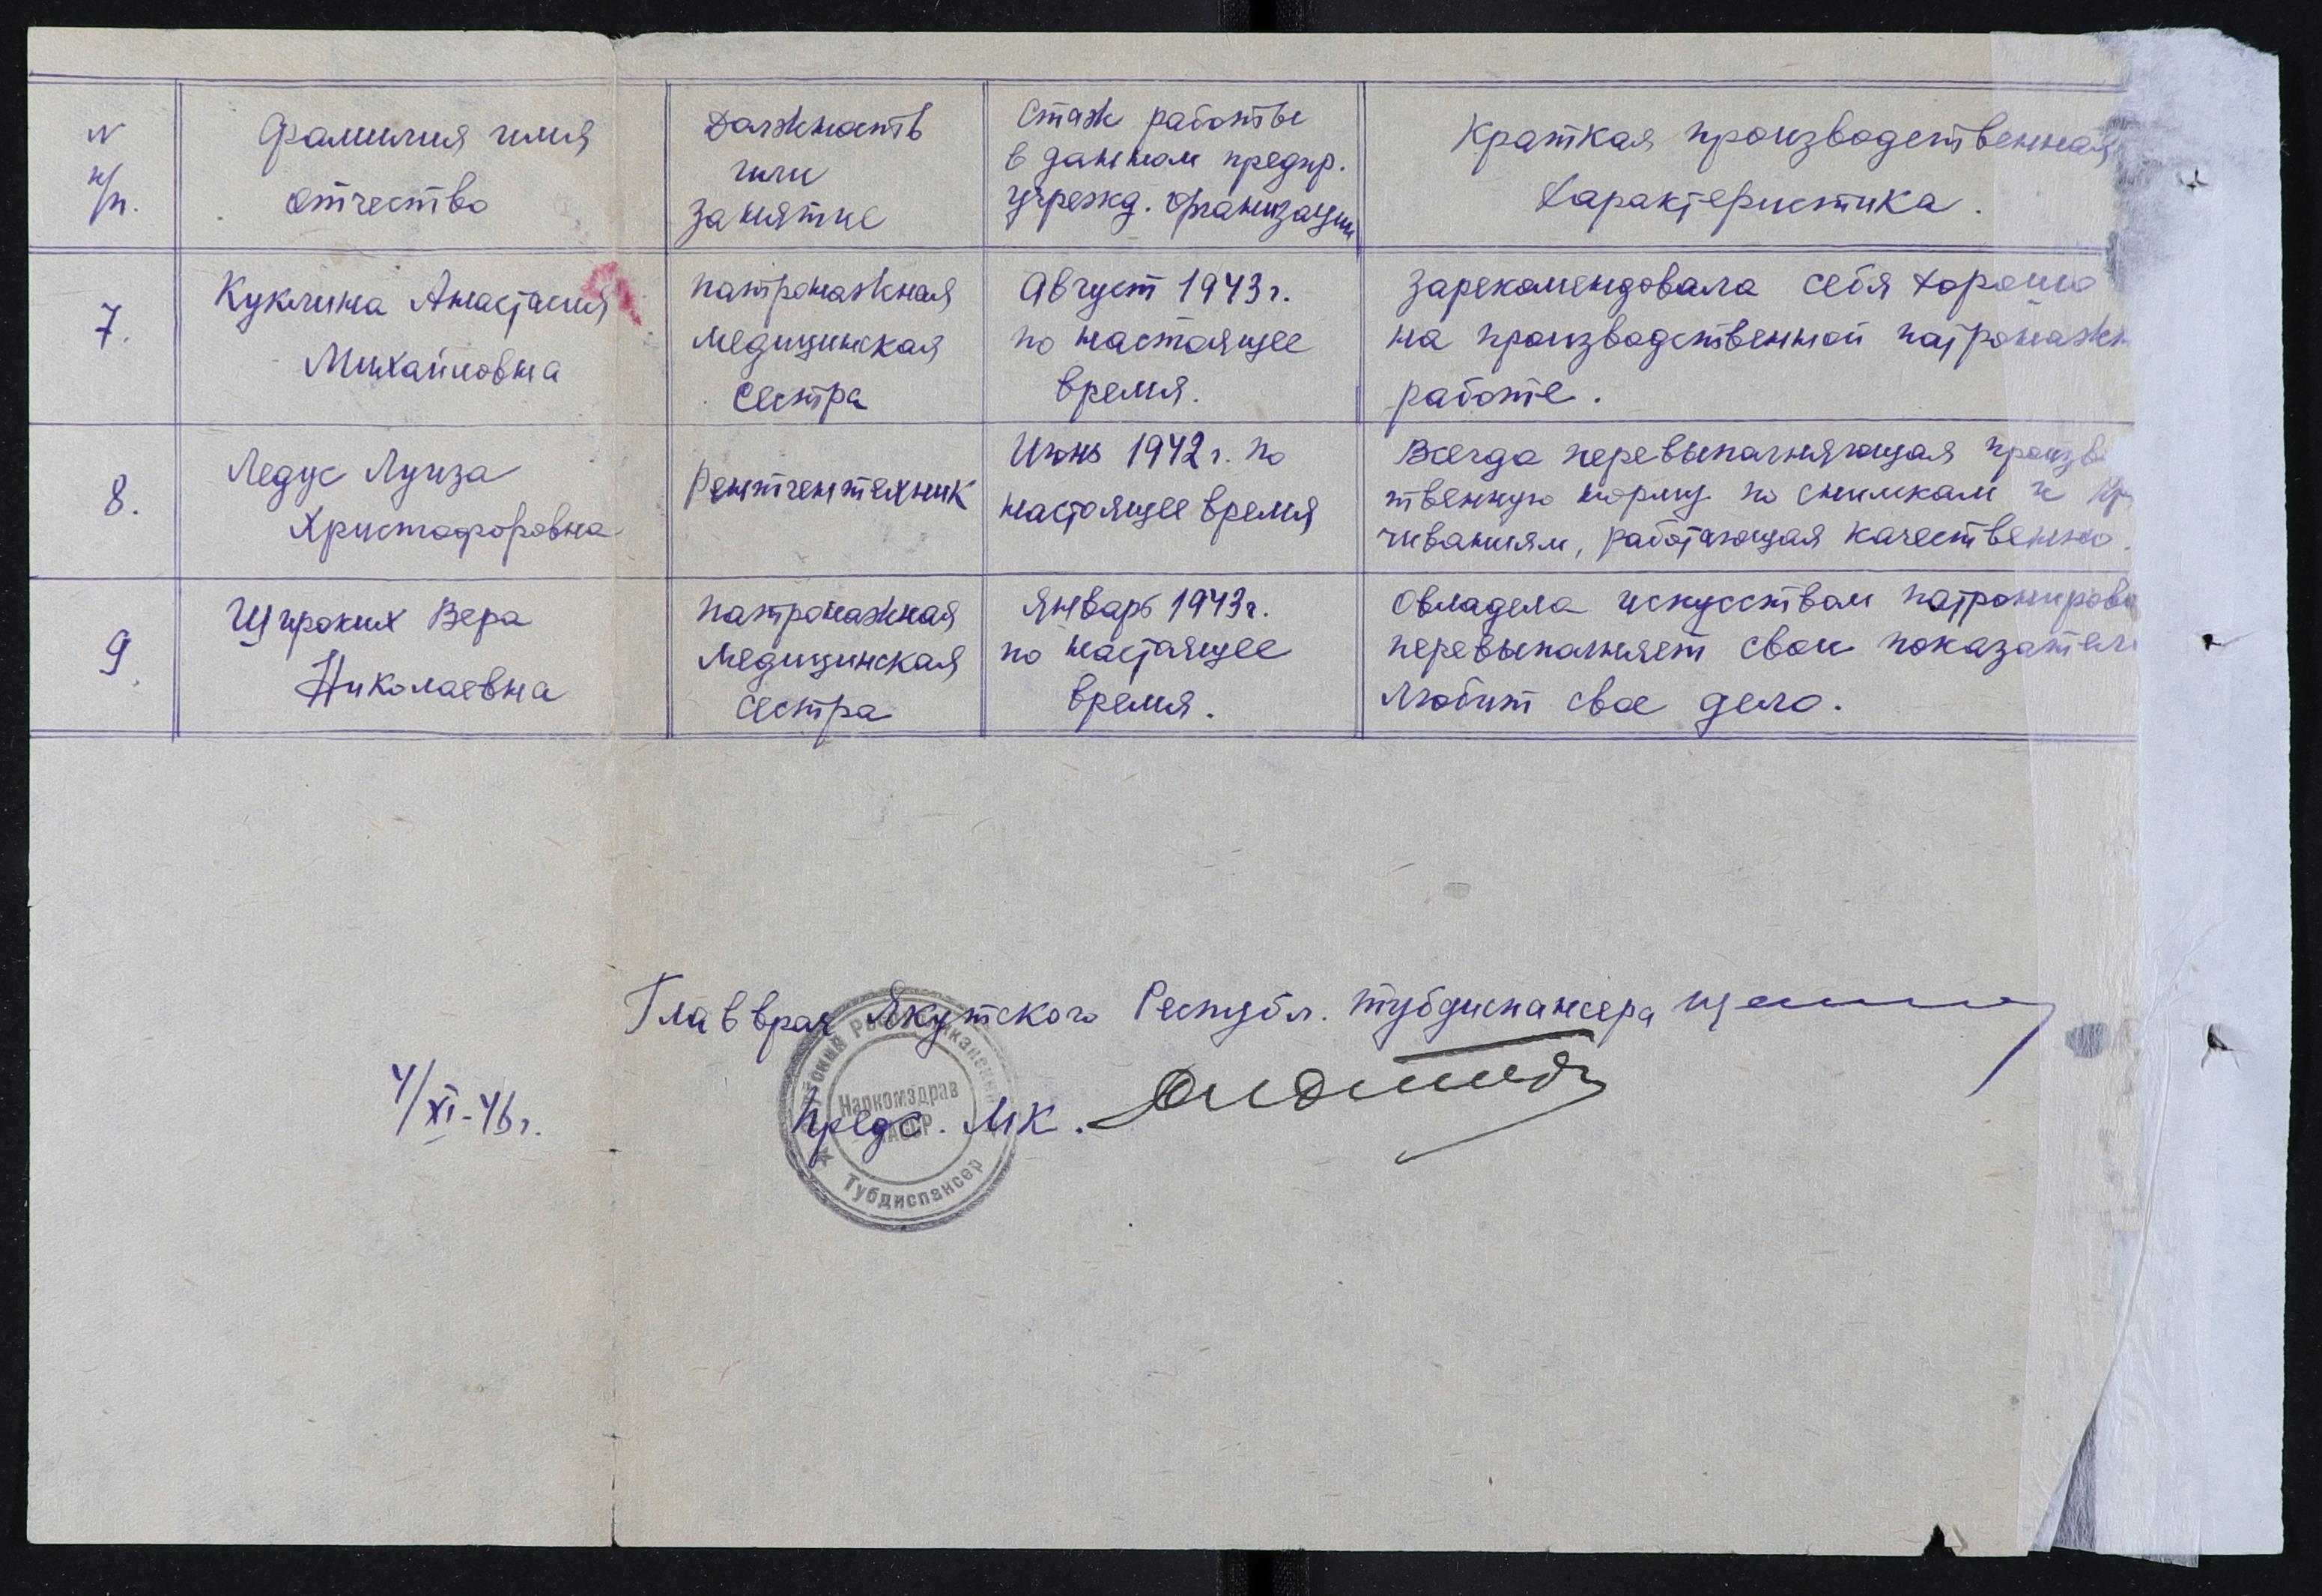 N п/п.
Фамилия имя
отчество
Должность
или
занятие
Стаж работы
в данном предпр.
учрежд. организации
Краткая производственная
характеристика.
7.
Куклина Анастасия
Михайловна
патронажная
медицинская
сестра
Август 1943 г.
по настоящее
время.
Зарекомендовала себя хорошо
на производственной патронажн
работе.
8.
Ледус Луиза
Христофоровна
Рентгентехник
Июнь 1942 г. по
настоящее время
Всегда перевыполняющая произв
ственную норму по снимкам и
чиваниям, работающая качественно.
9.
Широких Вера
Николаевна
патронажная
медицинская
сестра
Январь 1943 г.
по настоящее
время.
Овладела искусством патронирова
перевыполняет свои показатели
любит свое дело.
Главврач Якутского Республ. тубдиспансера
4/XI-46 г.
Предс. МК.
Якутский Республиканский
Наркомздрав
ЯАССР
Тубдиспансер